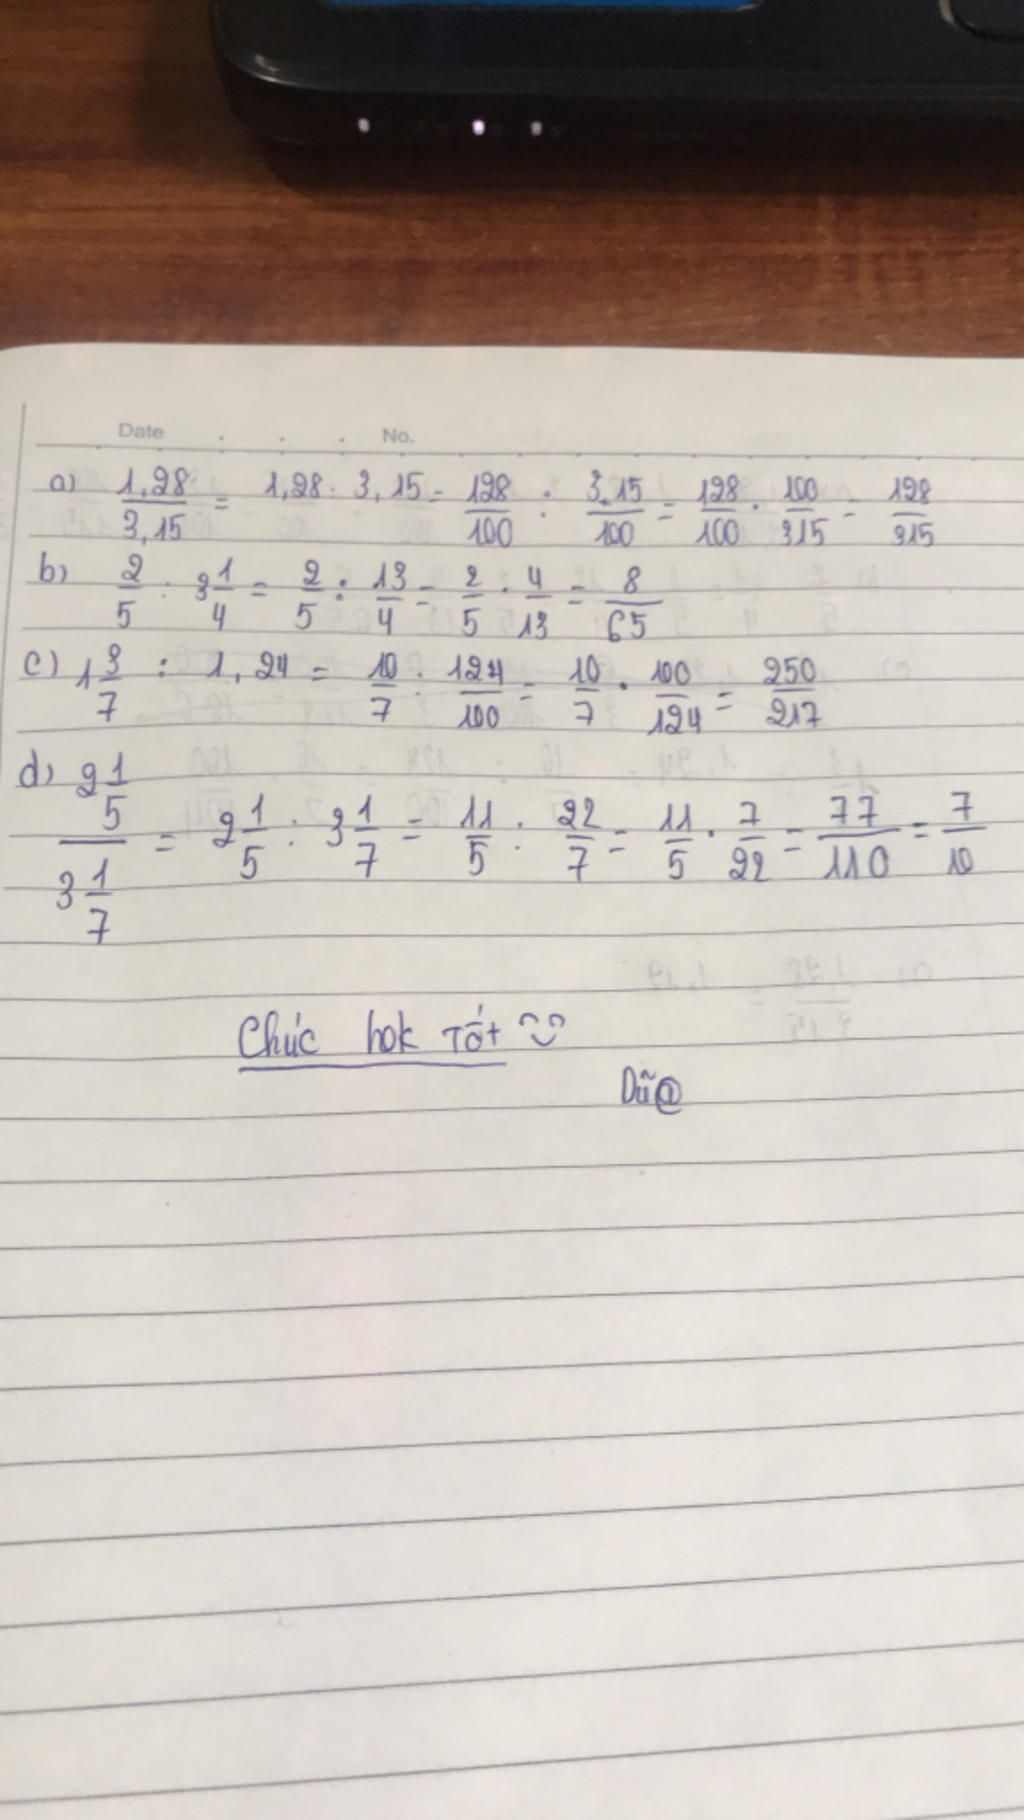 Date . . . No.
a) 1,28/3,15 = 1,28 : 3,15 = 128/100 : 3.15/100 = 128/100 . 100/315 = 128/315
b) 2/5 : 3 1/4 = 2/5 : 13/4 = 2/5 . 4/13 = 8/65
c) 1 3/7 : 1,24 = 10/7 : 124/100 = 10/7 . 100/124 = 250/217
d) 2 1/5 / 3 1/7 = 2 1/5 : 3 1/7 = 11/5 : 22/7 = 11/5 . 7/22 = 77/110 = 7/10
Chúc hok Tốt
Dũ@